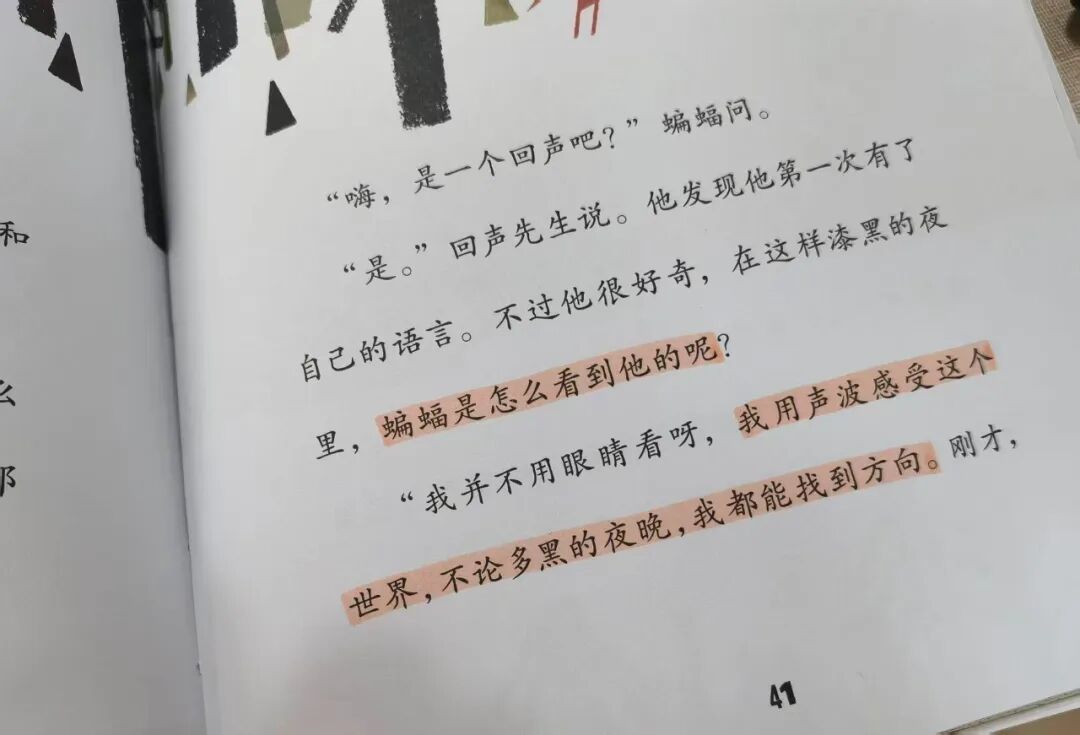 和
么
那
“嗨，是一个回声吧？”蝙蝠问。
“是。”回声先生说。他发现他第一次有了
自己的语言。不过他很好奇，在这样漆黑的夜
里，蝙蝠是怎么看到他的呢？
“我并不用眼睛看呀，我用声波感受这个
世界，不论多黑的夜晚，我都能找到方向。刚才，
41